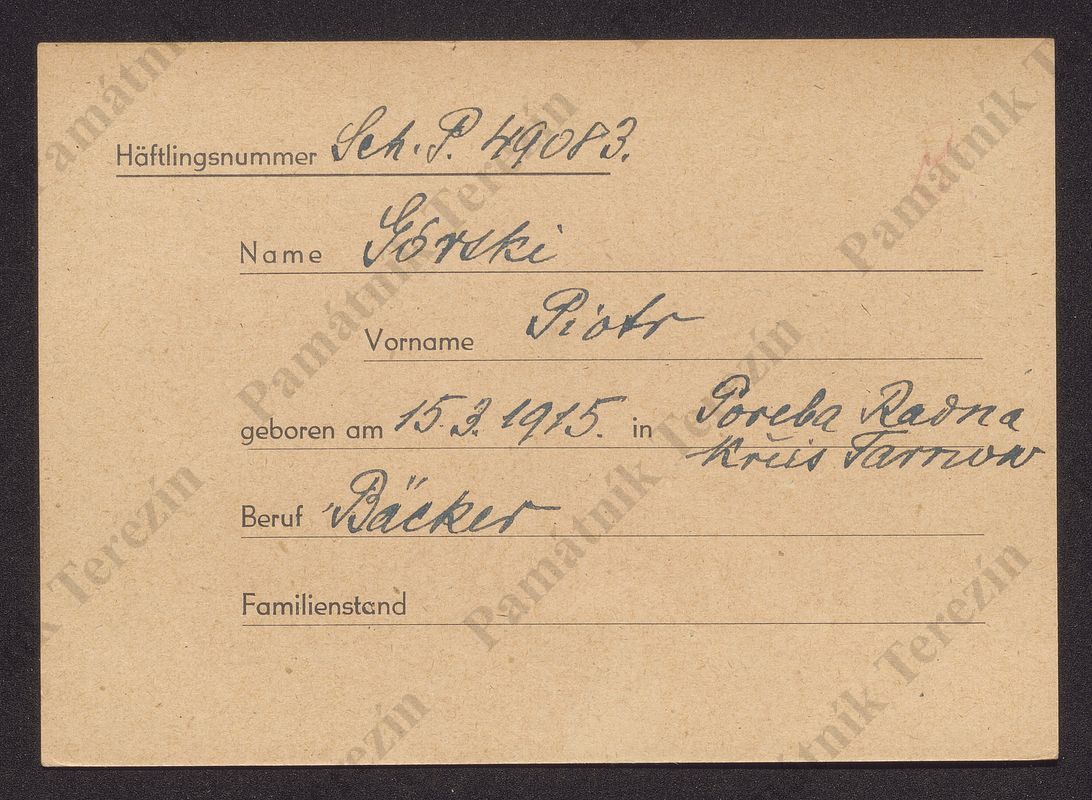 Häftlingsnummer Sch. P. 49083.
Name Górski
Vorname Piotr
geboren am 15.3.1915. in Poreba Radná
Kreis Tarnow
Beruf Bäcker
Familienstand
Památník Terezín